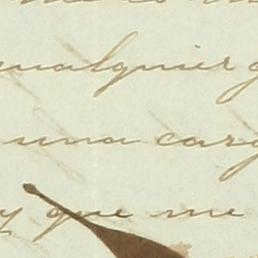 ualquier g
una carg
y que me